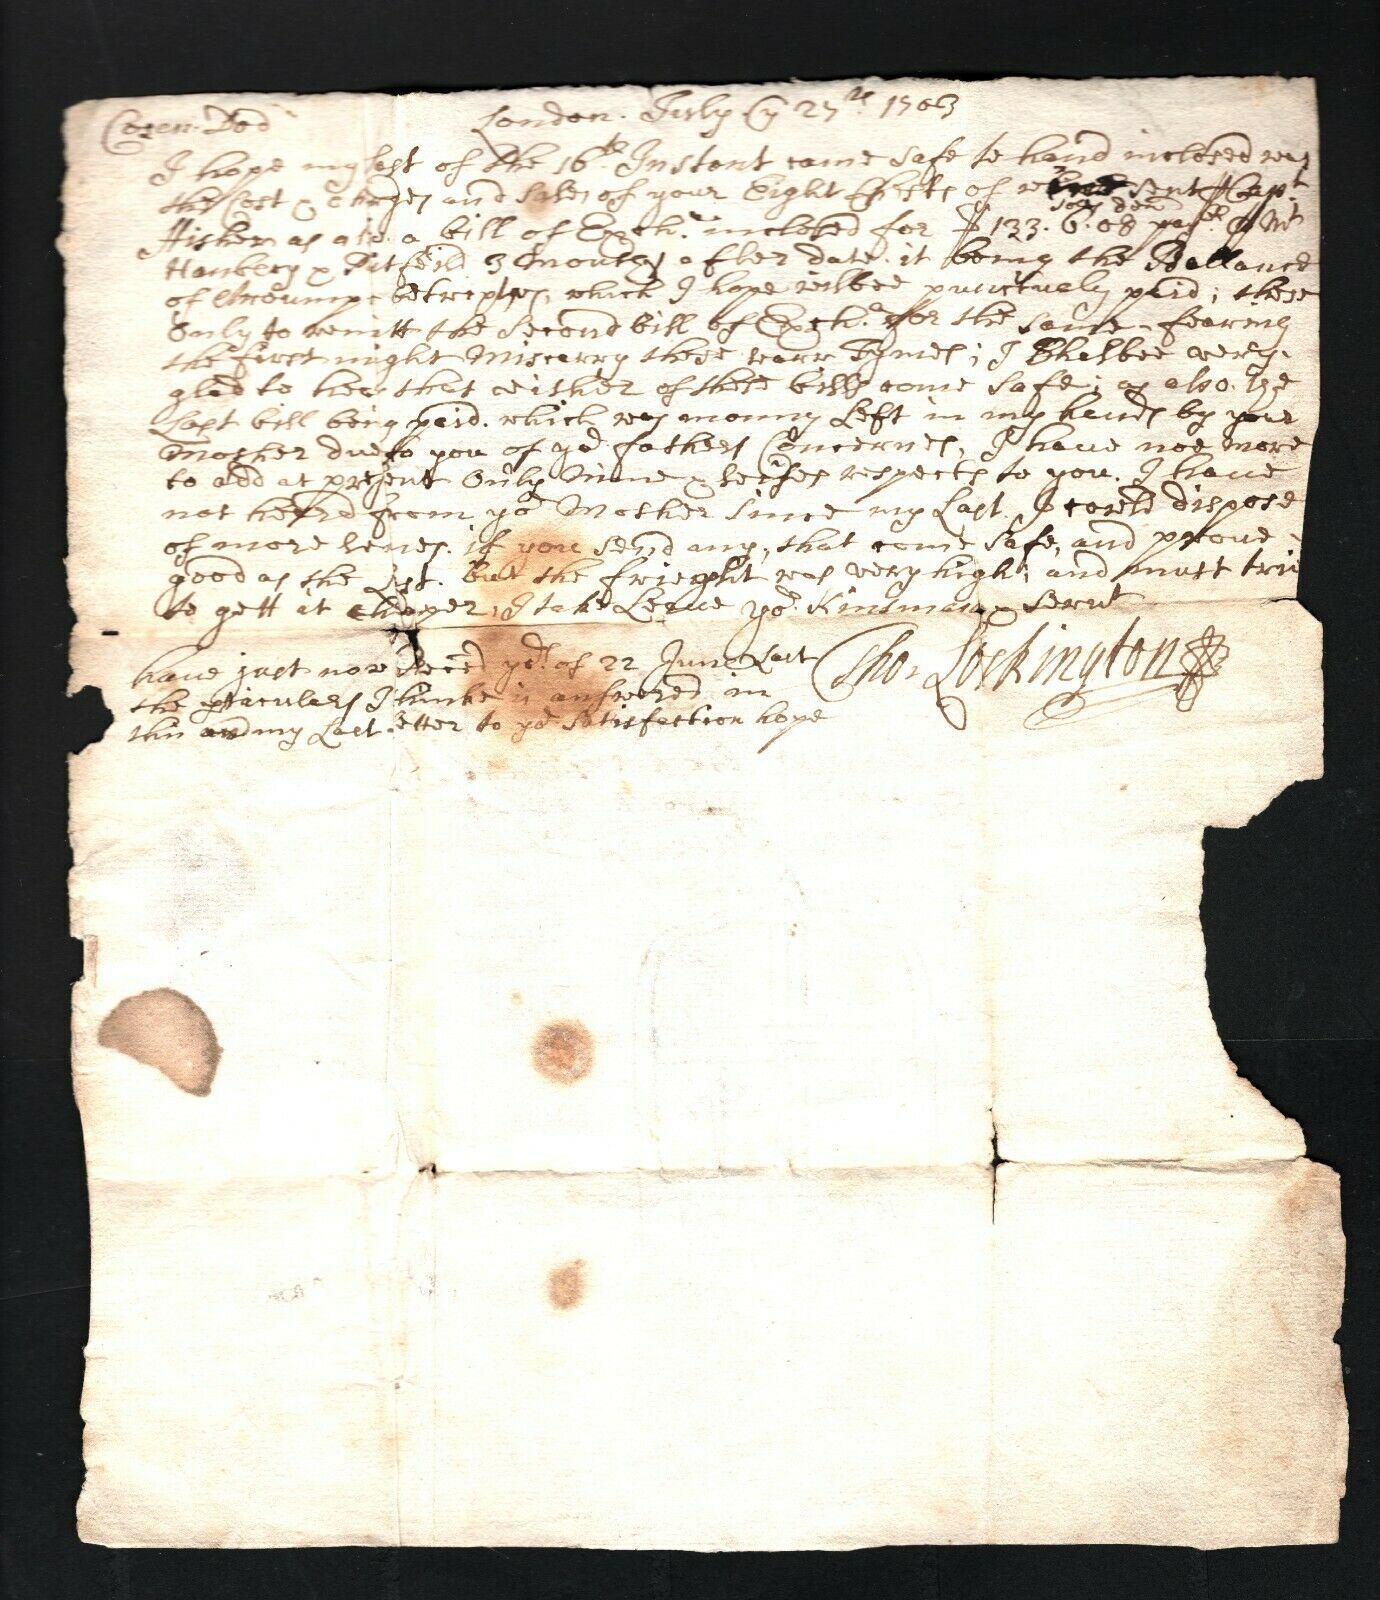 Cozen Dod London July ye 27th 1703
I hope my last of the 16th Instant came safe to hand inclosed was
the Cost & Charges and Sales of your Eight Chests of sent Capt
Fisher as also a bill of Exch. inclosed for 133. 6. 08 pay
Hanbery & Pitfeild 3 Months after date it being the Ballance
of Accoumpt betwixt us, which I hope wilbee punctualy paid; these
Only to remitt the Second bill of Exch. for the same fearing
the first might Miscarry these warr Tymes; I Shalbee very
glad to hear that either of these bills come safe; as also the
Last bill being paid which was monny Left in my hands by your
Mother due to you of yor fathers Concernes, I have noe more
to add at present Only Mine & respects to you. I have
not heard from yor Mother since my Last. I could dispose
of more if you send any, that come safe, and prove
good as the Last. but the frieght was very high; and must trie
to gett it cheaper, I take Leave yor. Kinsman & Servt
Thos Lockington
have just now Receed yors. of 22 June Last
the pticulers I thinke is answered in
this and my Last Letter to yor Satisfaction hope